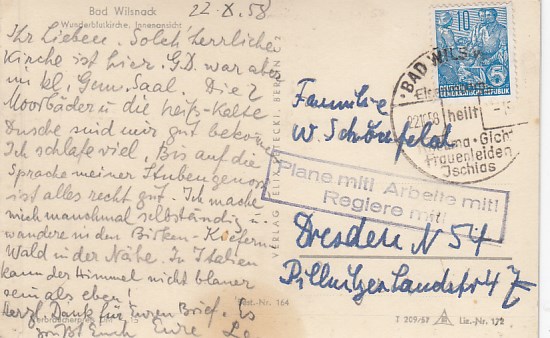 Bad Wilsnack
Wunderblutkirche, Innenansicht
22.X.58
Ihr Lieben. Solch' herrliche
Kirche ist hier. G.D. war aber
im kl. Gem. Saal. Die 2
Moorbäder u. die heiß-kalte
Dusche sind mir gut bekommen
Ich schlafe viel. Bis auf die
Sprache meiner Stubengenoss
ist alles recht gut. Ich mache
mich manchmal selbständig u.
wandere in den Birken-Kiefern
Wald in der Nähe. In Italien
kann der Himmel nicht blauer
sein als eben!
Herzl. Dank für Euren Brief. Es
grüßt Euch Eure
Best.-Nr. 164
VERLAG FELIX SETECKI, BERLIN
10
5
DEUTSCHE DEMOKRATISCHE REPUBLIK
BAD WILSN
22.X.58
heilt
Rheuma · Gicht
Frauenleiden
Ischias
Familie
W. Schönfeld
Plane mit! Arbeite mit!
Regiere mit!
Dresden N 54
Pillnitzer Landstr 47
T 209/57 Liz.-Nr. 172